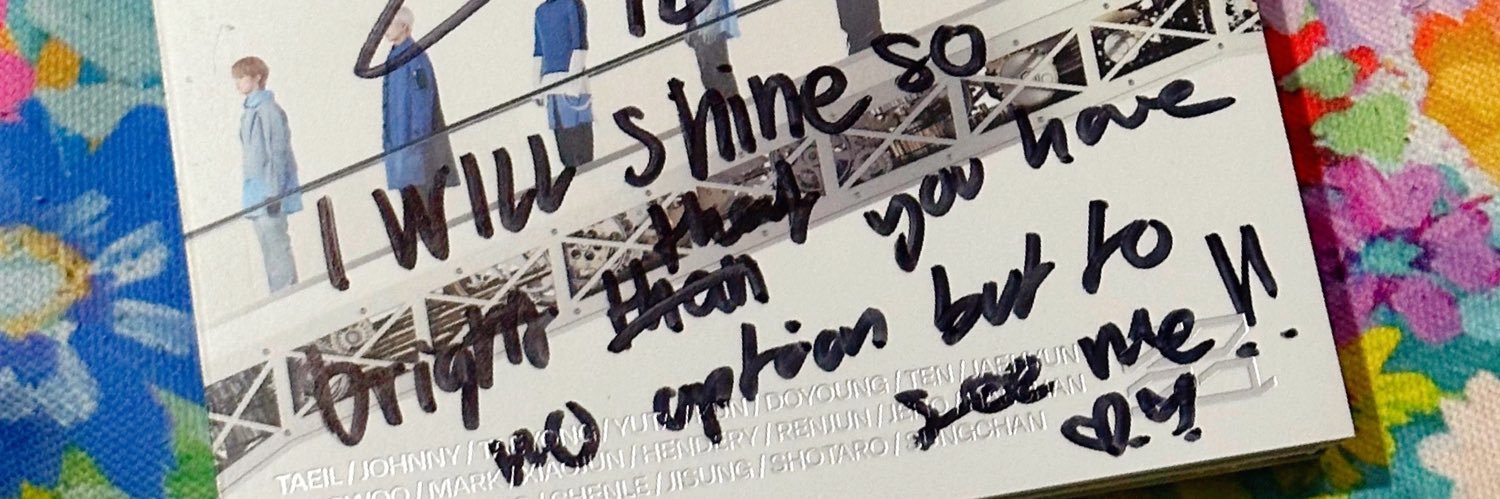 To
I WILL shine so
bright than that you have
no option but to
see me !!
TAEIL / JOHNNY / TAEYONG / YUTA / KUN / DOYOUNG / TEN / JAEHYUN
MARK / XIAOJUN / HENDERY / RENJUN / JENO /
CHENLE / JISUNG / SHOTARO / SUNGCHAN